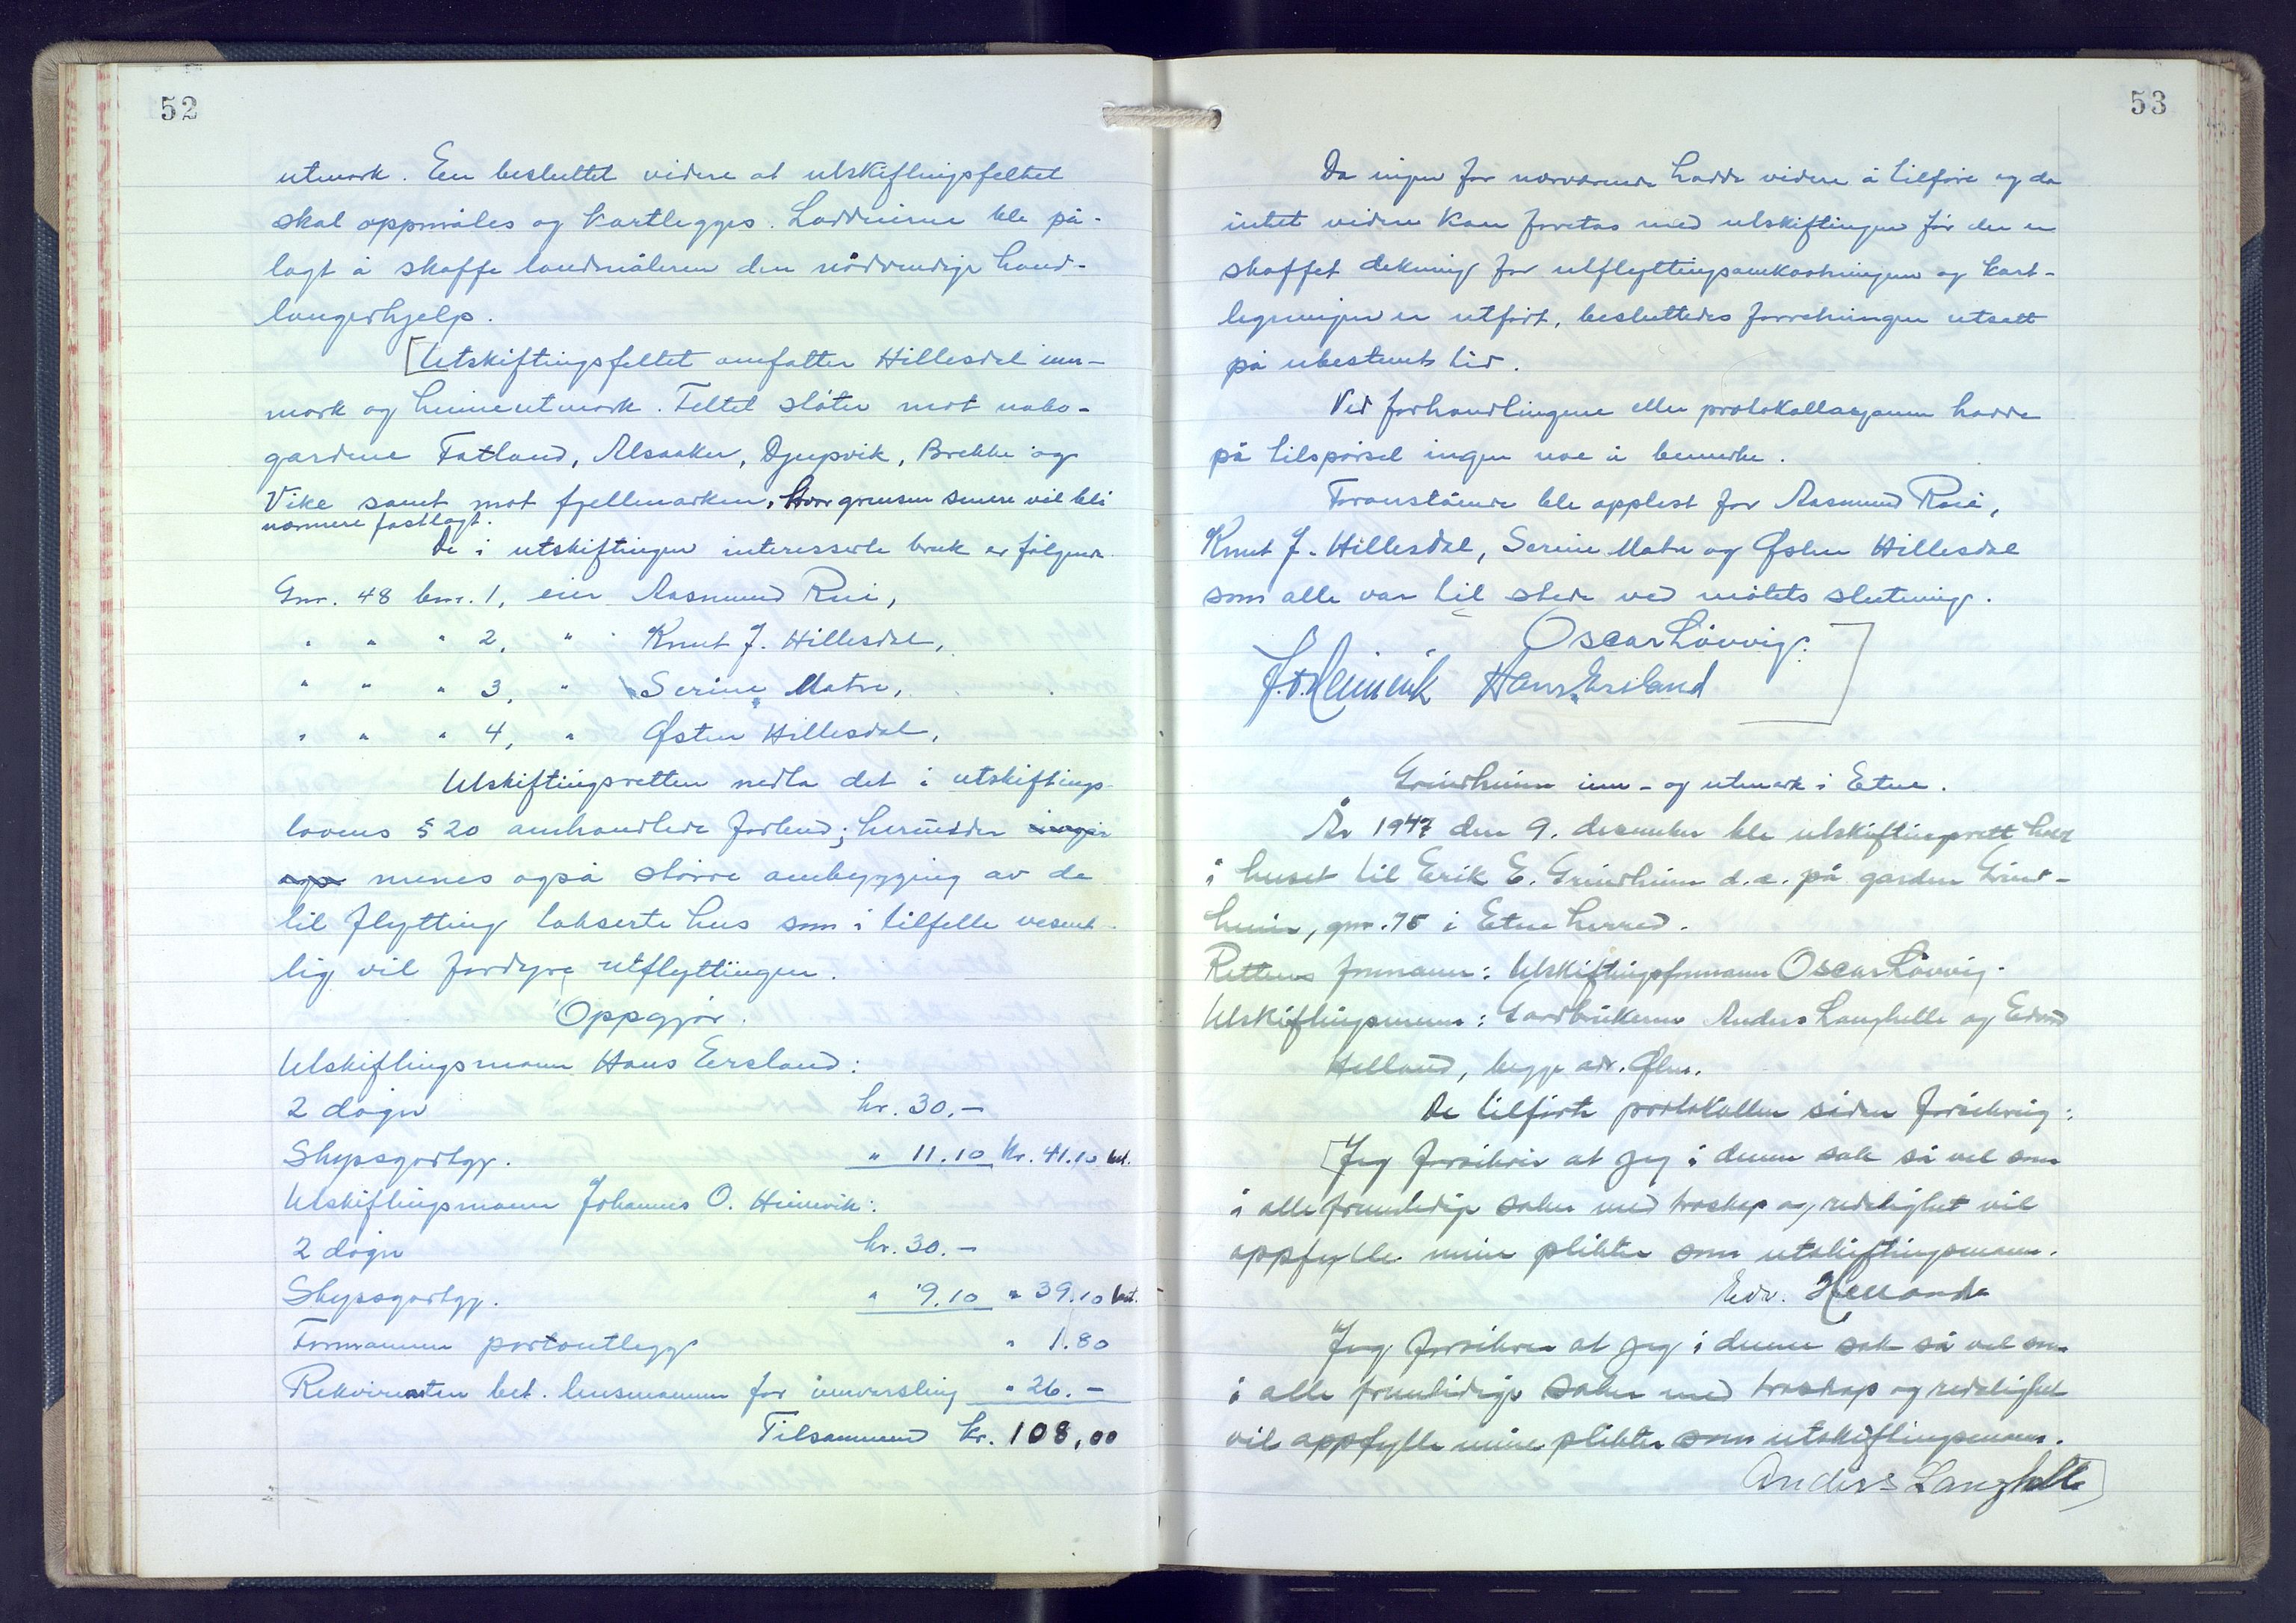 52
utmark. En besluttet videre at utskiftingsfeltet
skal oppmåles og kartlegges. Loddeierne ble på-
lagt å skaffe landmåleren den nødvendige hand-
langerhjelp.
[Utskiftingsfeltet omfatter Hillesdal inn-
mark og heimeutmark. Feltet støter mot nabo-
gardene Fatland, Alsaaker, Djupvik, Brekke og
Vike samt mot fjellmarken, hvor grensen senere vil bli
nærmere fastlagt.
De i utskiftingen interesserte bruk er følgende
Gnr. 48 bnr. 1, eier Aasmund Rui,
" " " 2, " Knut J. Hillesdal,
" " " 3, " Serine Matre,
" " " 4, " Østen Hillesdal,
Utskiftingsretten nedla det i utskiftings-
lovens § 20 omhandlede forbud; herunder
menes også større ombygging av de
til flytting takserte hus som i tilfelle vesent-
lig vil fordyre utflyttingen.
Oppgjør.
Utskiftingsmann Hans Ersland:
2 døgn kr. 30.-
Skyssgodtgj. " 11.10 kr. 41.10 bet.
Utskiftingsmann Johannes O. Heimvik:
2 døgn kr. 30.-
Skyssgodtgj. " 9.10 " 39.10 bet.
Formannen portoutlegg " 1.80
Rekvirenten bet. lensmannen for innvarsling " 26.-
Tilsammen kr. 108,00
53
Da ingen for nærværende hadde videre å tilføre og da
intet videre kan foretas med utskiftingen før der er
skaffet dekning for utflyttingsomkostningene og kart-
legningen er utført, besluttedes forretningen utsatt
på ubestemt tid.
Ved forhandlingene eller protokollasjonen hadde
på tilspørsel ingen noe å bemerke.
Foranstående ble opplest for Aasmund Rui,
Knut J. Hillesdal, Serine Matre og Østen Hillesdal
som alle var til stede ved møtets slutning.
Oscar Løvvig.
J. O. Heimvik Hans Ersland ]
Grindheim inn- og utmark i Etne.
År 1947 den 9. desember ble utskiftingsrett hold
i huset til Erik E. Grindheim d.e. på garden Grind-
heim, gnr. 75 i Etne herred.
Rettens formann: Utskiftingsformann Oscar Løvvig.
Utskiftingsmenn: Gardbrukerne Anders Langhelle og Edvard
Helland, begge adr. Ølen.
De tilførte protokollen sådan forsikring:
[Jeg forsikrer at jeg i denne sak så vel som
i alle fremtidige saker med troskap og redelighet vil
oppfylle mine plikter som utskiftingsmann.
Edv. Helland
Jeg forsikrer at jeg i denne sak så vel som
i alle fremtidige saker med troskap og redelighet
vil oppfylle mine plikter som utskiftingsmann.
Anders Langhelle]